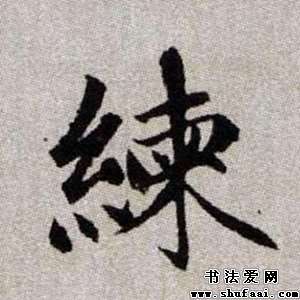 練
书法爱网
www.shufaai.com